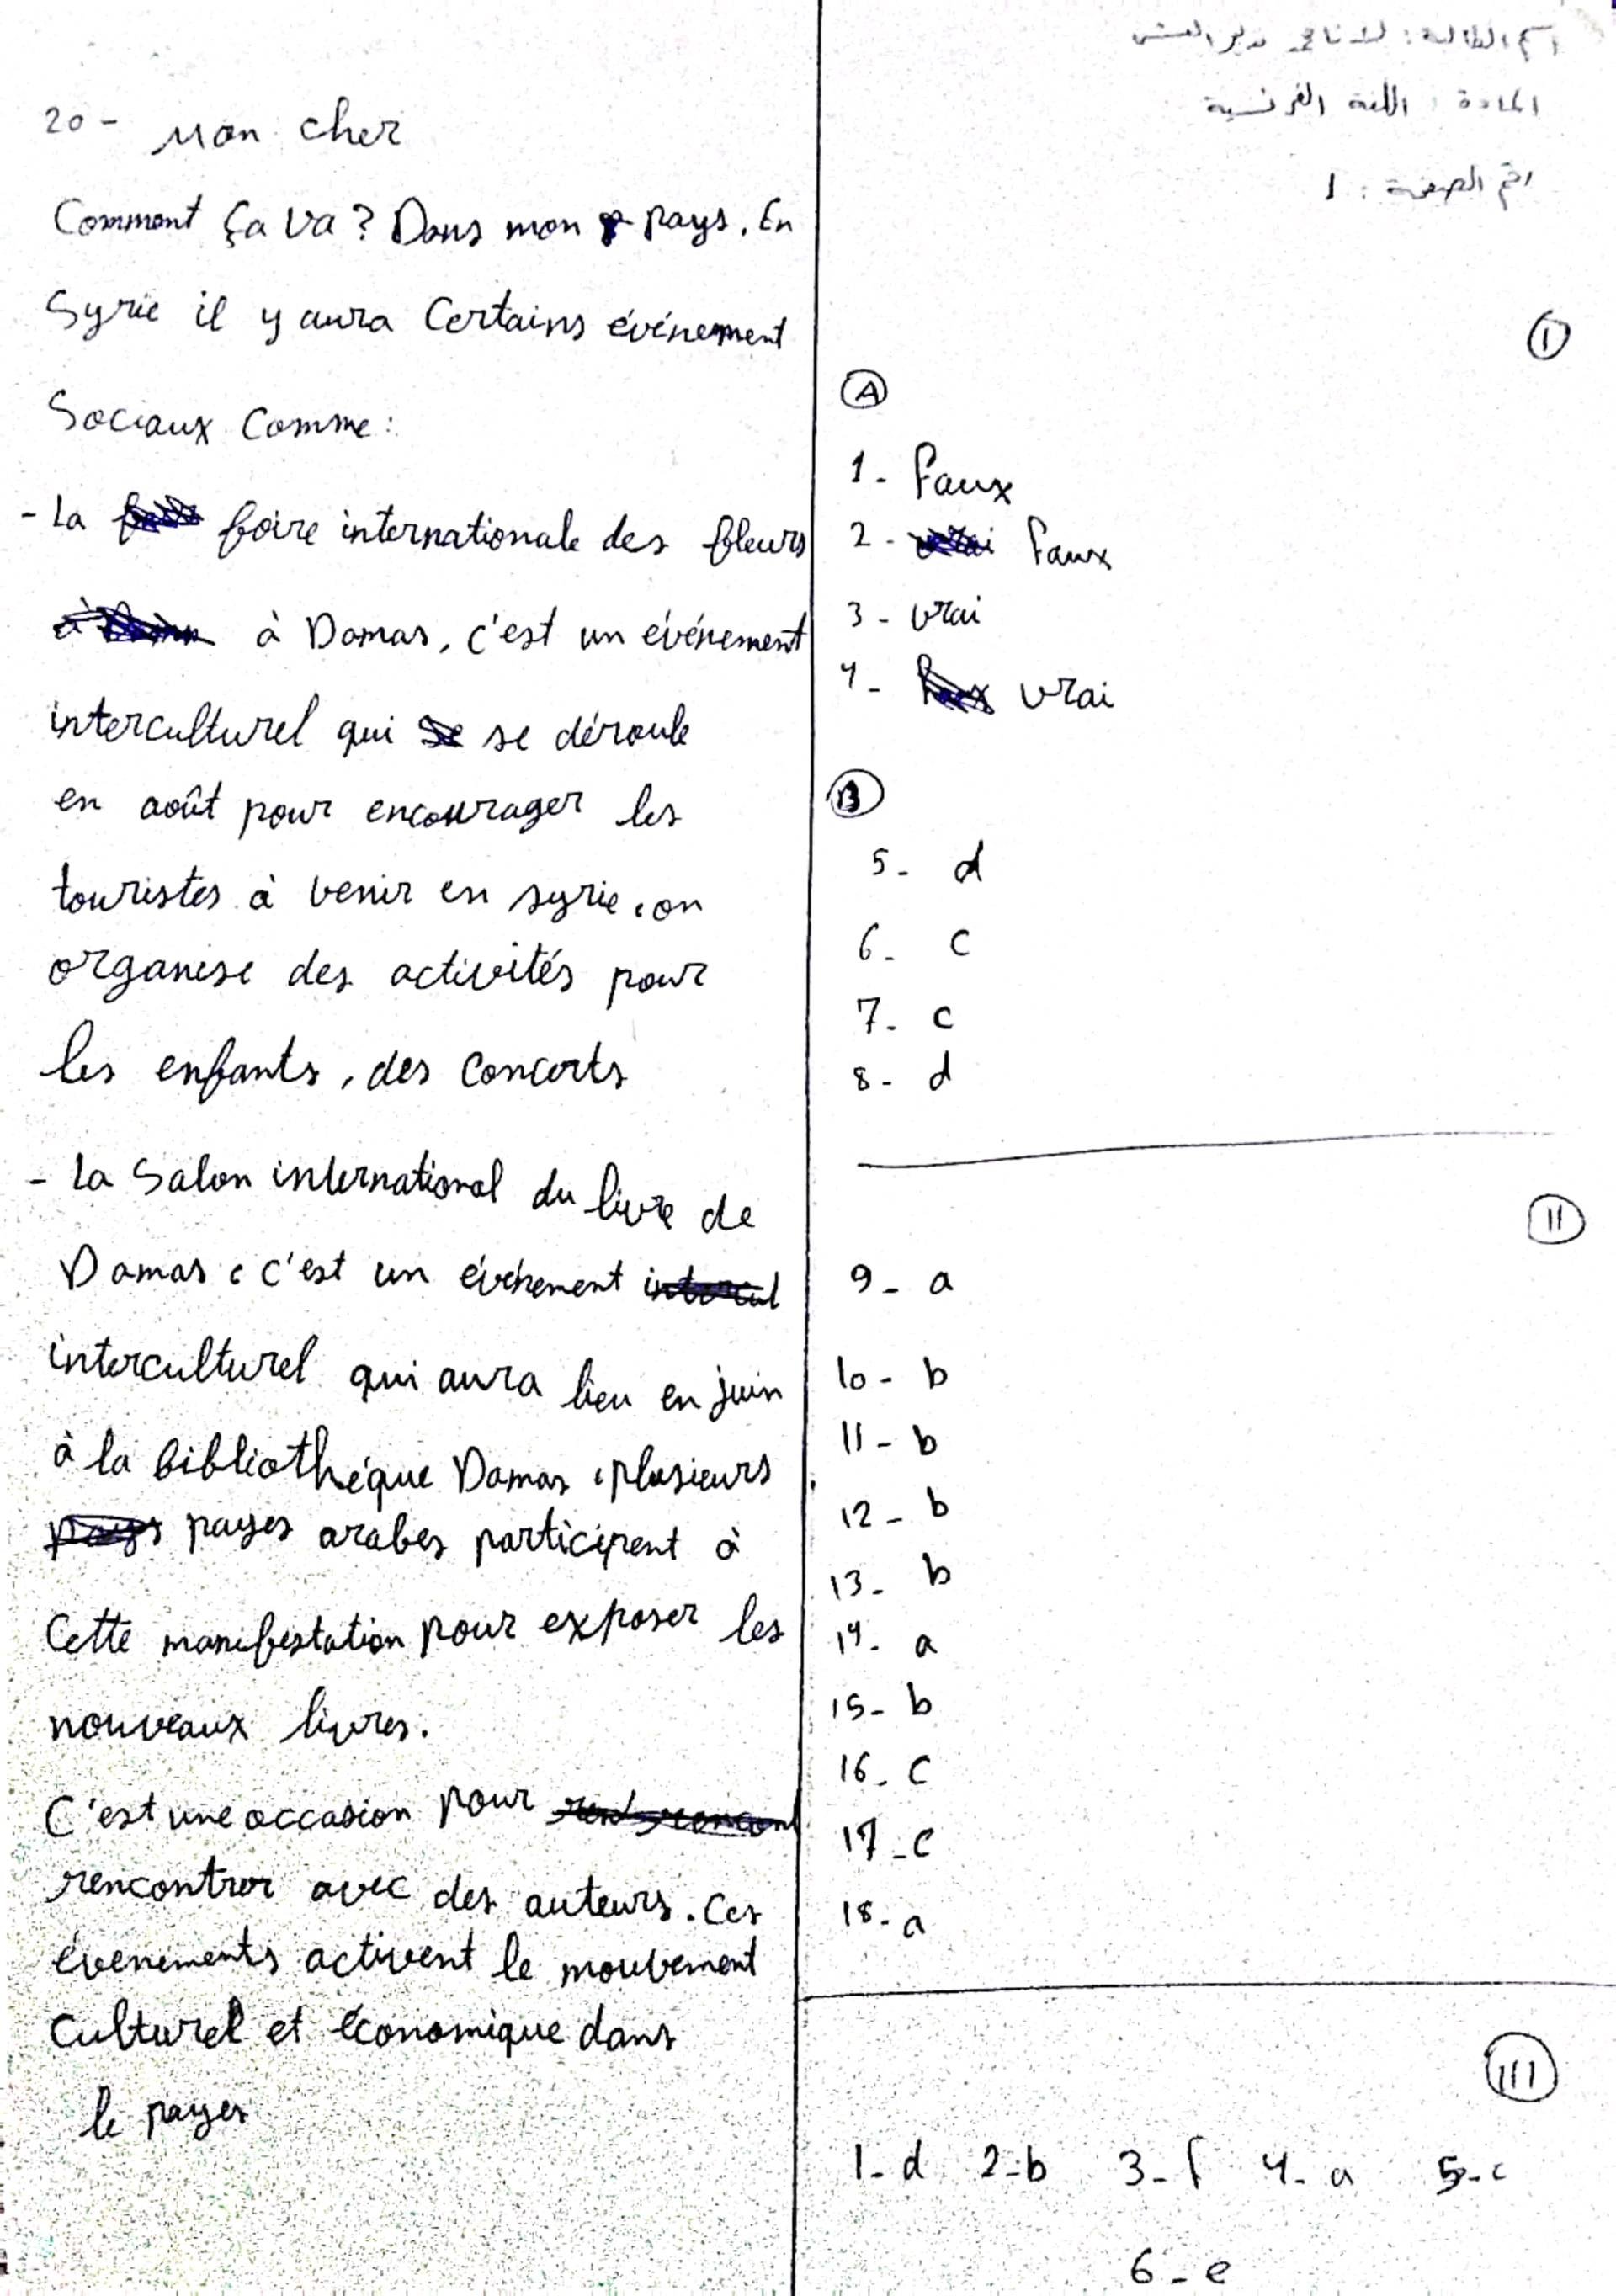 اسم الطالبة :
المادة : اللغة الفرنسية
رقم الصفحة : 1
I
A
1- Faux
2- Faux
3- vrai
4- vrai
B
5- d
6- c
7- c
8- d
II
9- a
10- b
11- b
12- b
13- b
14- a
15- b
16- c
17- c
18- a
III
1-d 2-b 3-f 4-a 5-c
6-e
20- Mon cher
Comment ça va? Dans mon pays. En
Syrie il y aura certains événement
Sociaux comme:
- la foire internationale des fleurs
à Damas, c'est un événement
interculturel qui se déroule
en août pour encourager les
touristes à venir en syrie, on
organise des activités pour
les enfants, des concerts
- la Salon international du livre de
Damas, c'est un événement
interculturel qui aura lieu en juin
à la bibliothéque Damas, plusieurs
payes arabes participent à
Cette manifestation pour exposer les
nouveaux livres.
C'est une occasion pour
rencontrer avec des auteurs. Ces
évenements activent le mouvement
culturel et économique dans
le payes